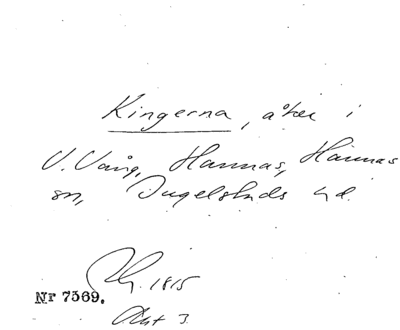 Kingerna, åker i
V. Vång, Hannas, Hannas
sn, Ingelstads hd.
1815
Nr 7369.
Akt 3.